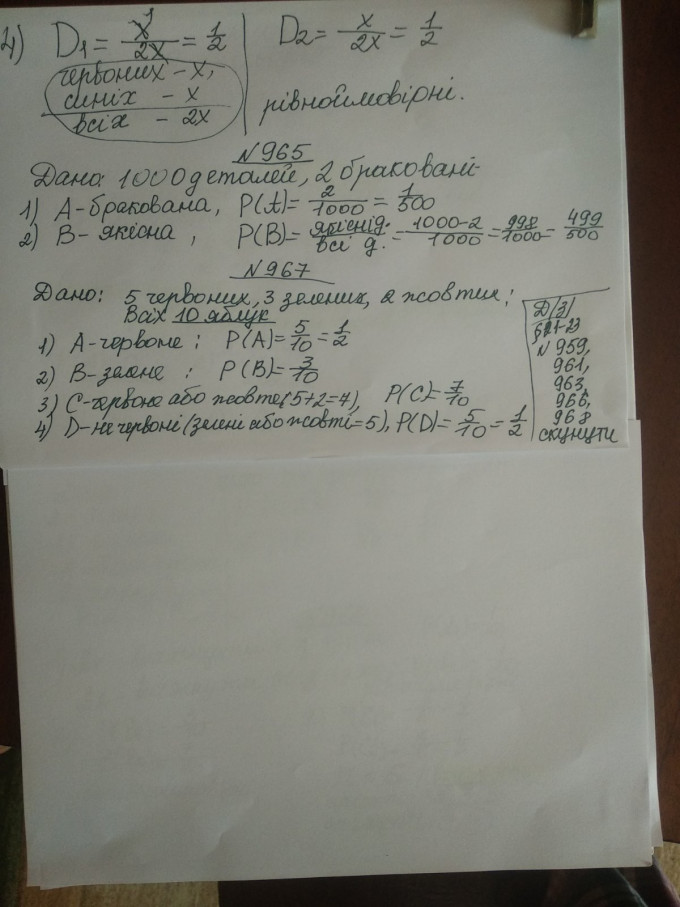 4) D1 = x/2x = 1/2 | D2 = x/2x = 1/2
червоних - x,
синіх - x
всіх - 2x
рівноймовірні.
N 965
Дано: 1000 деталей, 2 браковані
1) А-бракована, P(A) = 2/1000 = 1/500
2) В- якісна, P(B) = якісні д./всі д. = 1000-2/1000 = 998/1000 = 499/500
N 967
Дано: 5 червоних, 3 зелених, 2 жовтих;
Всіх 10 яблук
1) А-червоне; P(A) = 5/10 = 1/2
2) В-зелене; P(B) = 3/10
3) С-червоне або жовте(5+2=7), P(C) = 7/10
4) D-не червоні (зелені або жовті = 5), P(D) = 5/10 = 1/2
Д/З/
§21-23
N 959,
961,
963,
966,
968
скинути